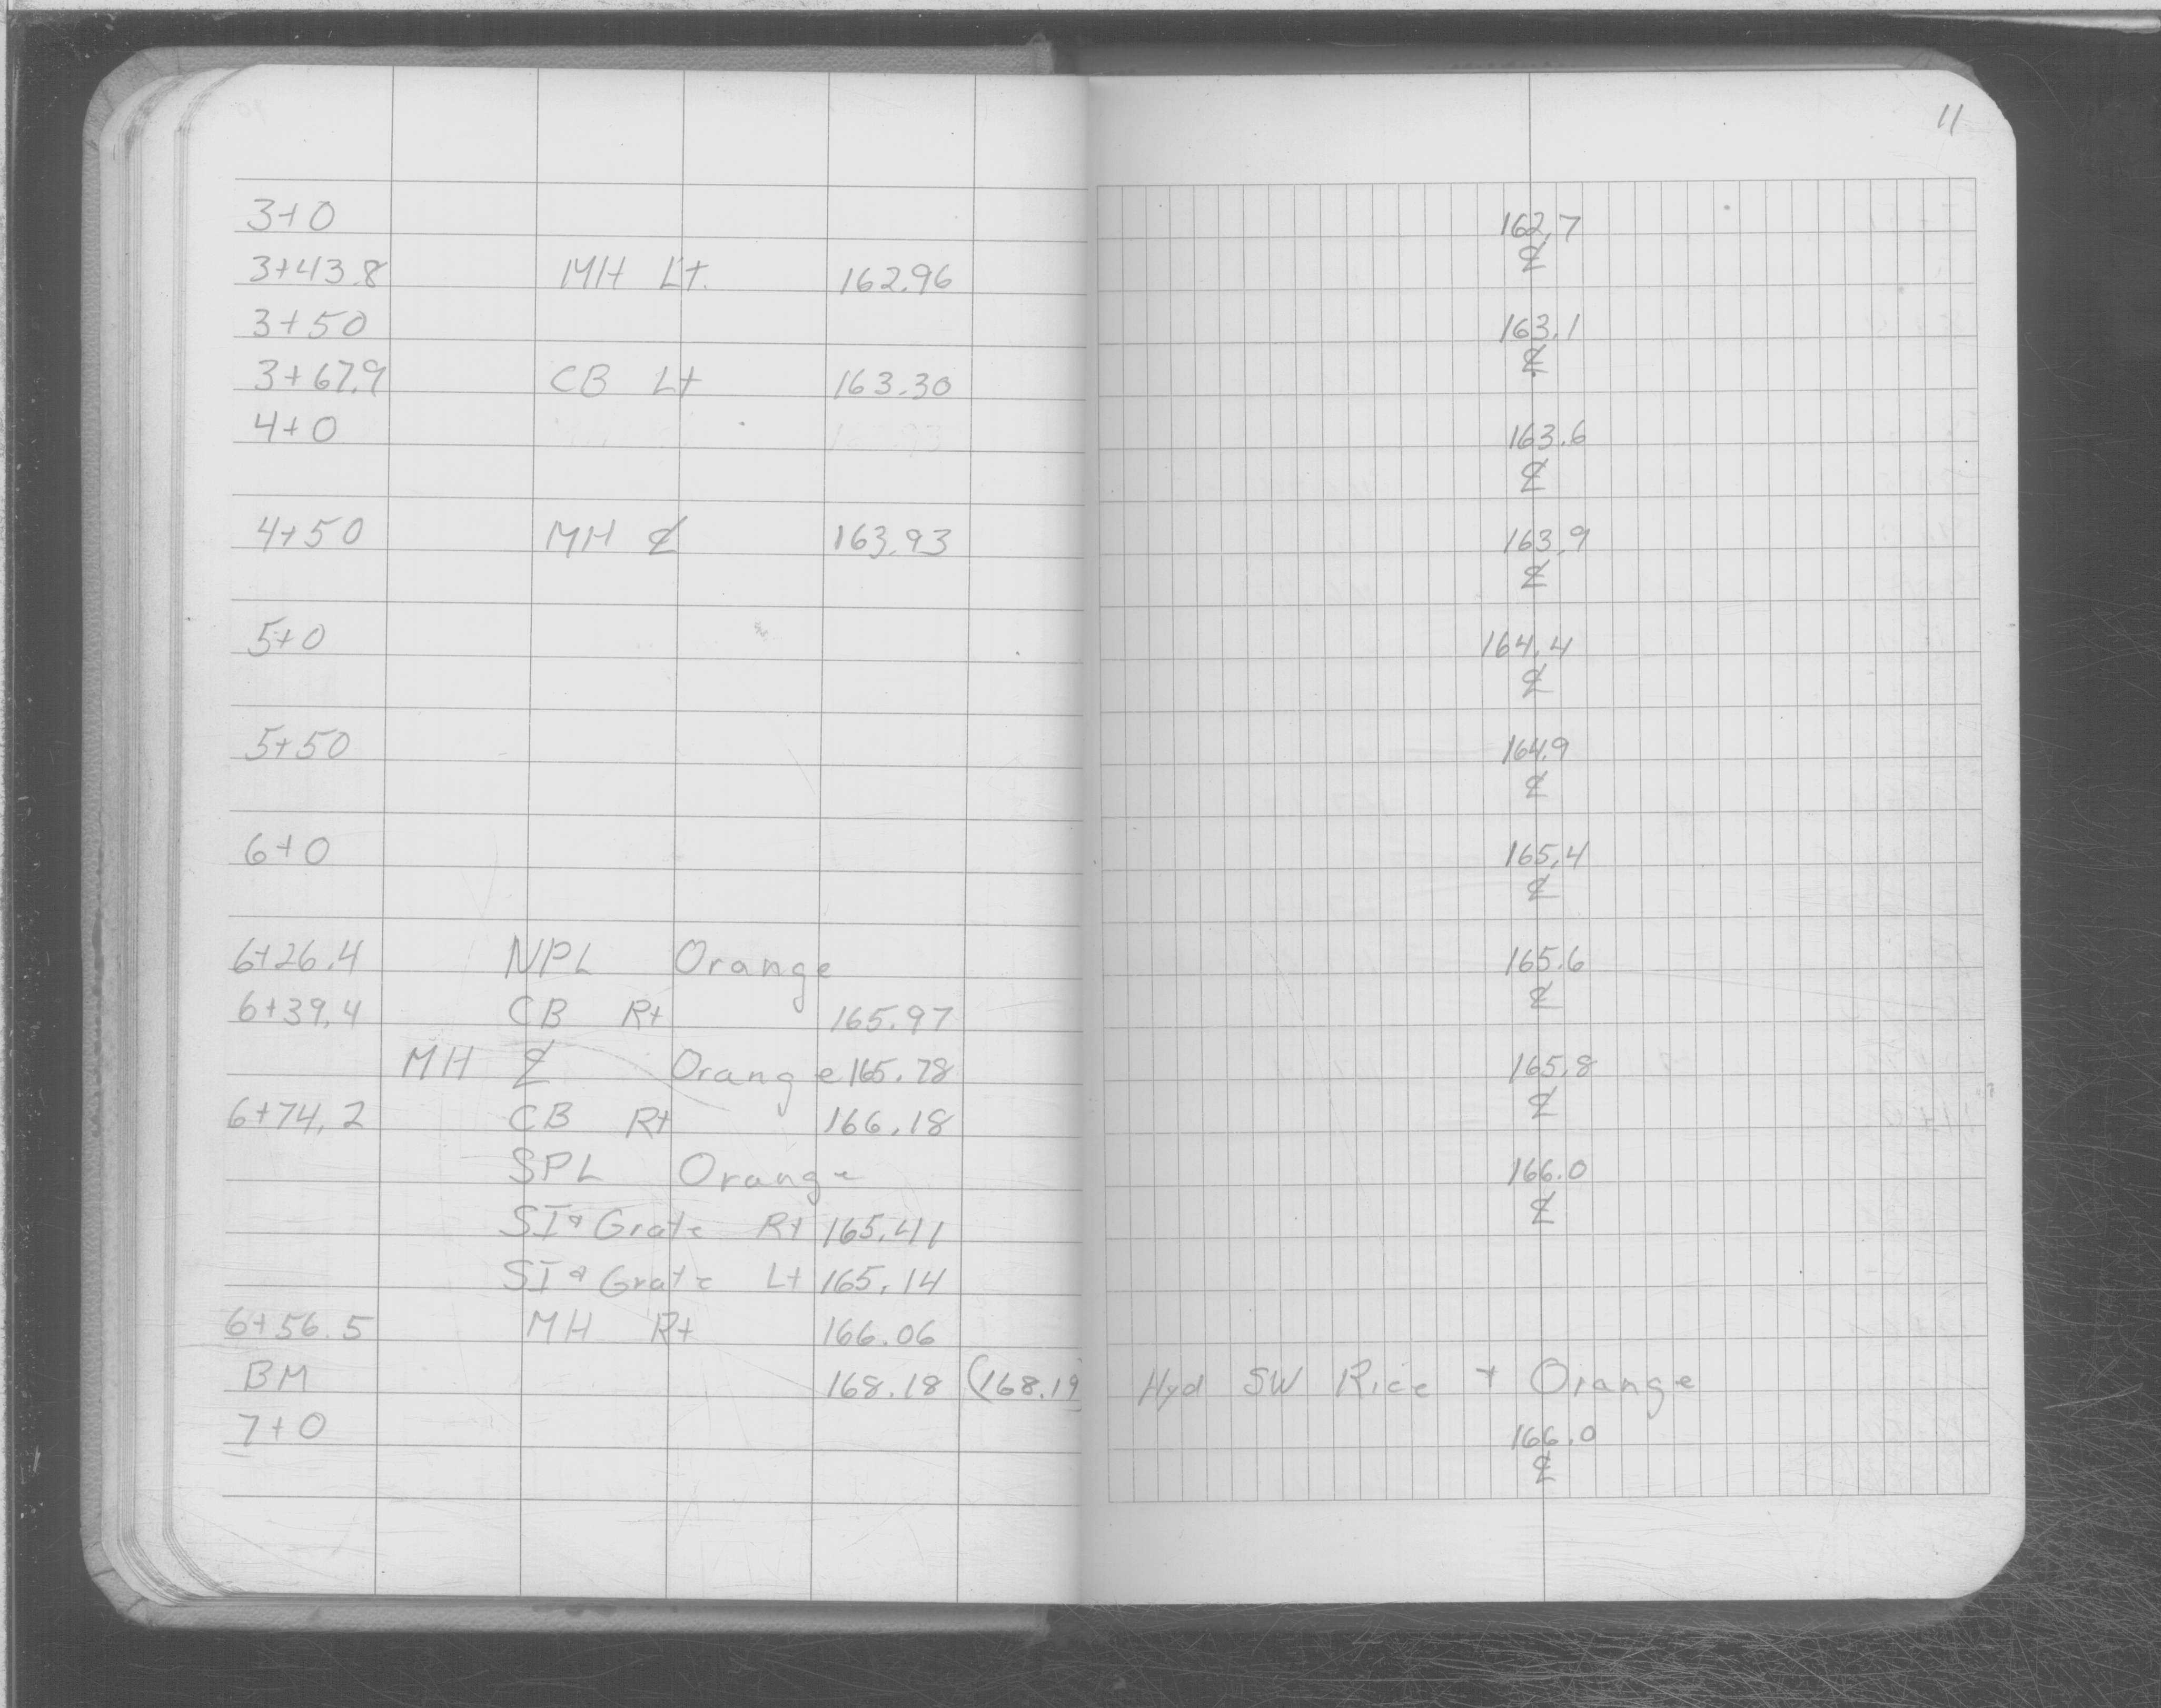 11
3+0 162.7
℄
3+43.8 MH Lt. 162.96
3+50 163.1
℄
3+67.9 CB Lt 163.30
4+0 163.6
℄
4+50 MH ℄ 163.93 163.9
℄
5+0 164.4
℄
5+50 164.9
℄
6+0 165.4
℄
6+26.4 NPL Orange 165.6
6+39.4 CB Rt 165.97 ℄
MH ℄ Orange 165.78 165.8
6+74.2 CB Rt 166.18 ℄
SPL Orange 166.0
SI & Grate Rt 165.41 ℄
SI & Grate Lt 165.14
6+56.5 MH Rt 166.06
BM 168.18 (168.19) Hyd SW Rice + Orange
7+0 166.0
℄